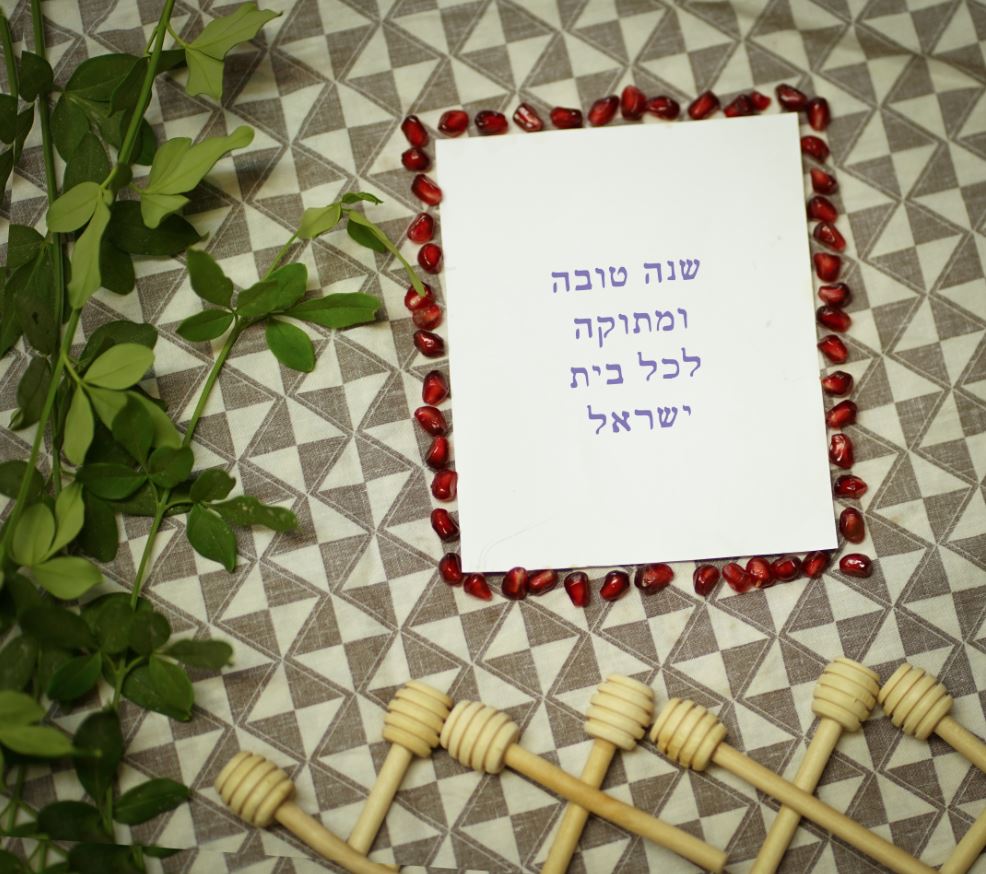 שנה טובה
ומתוקה
לכל בית
ישראל